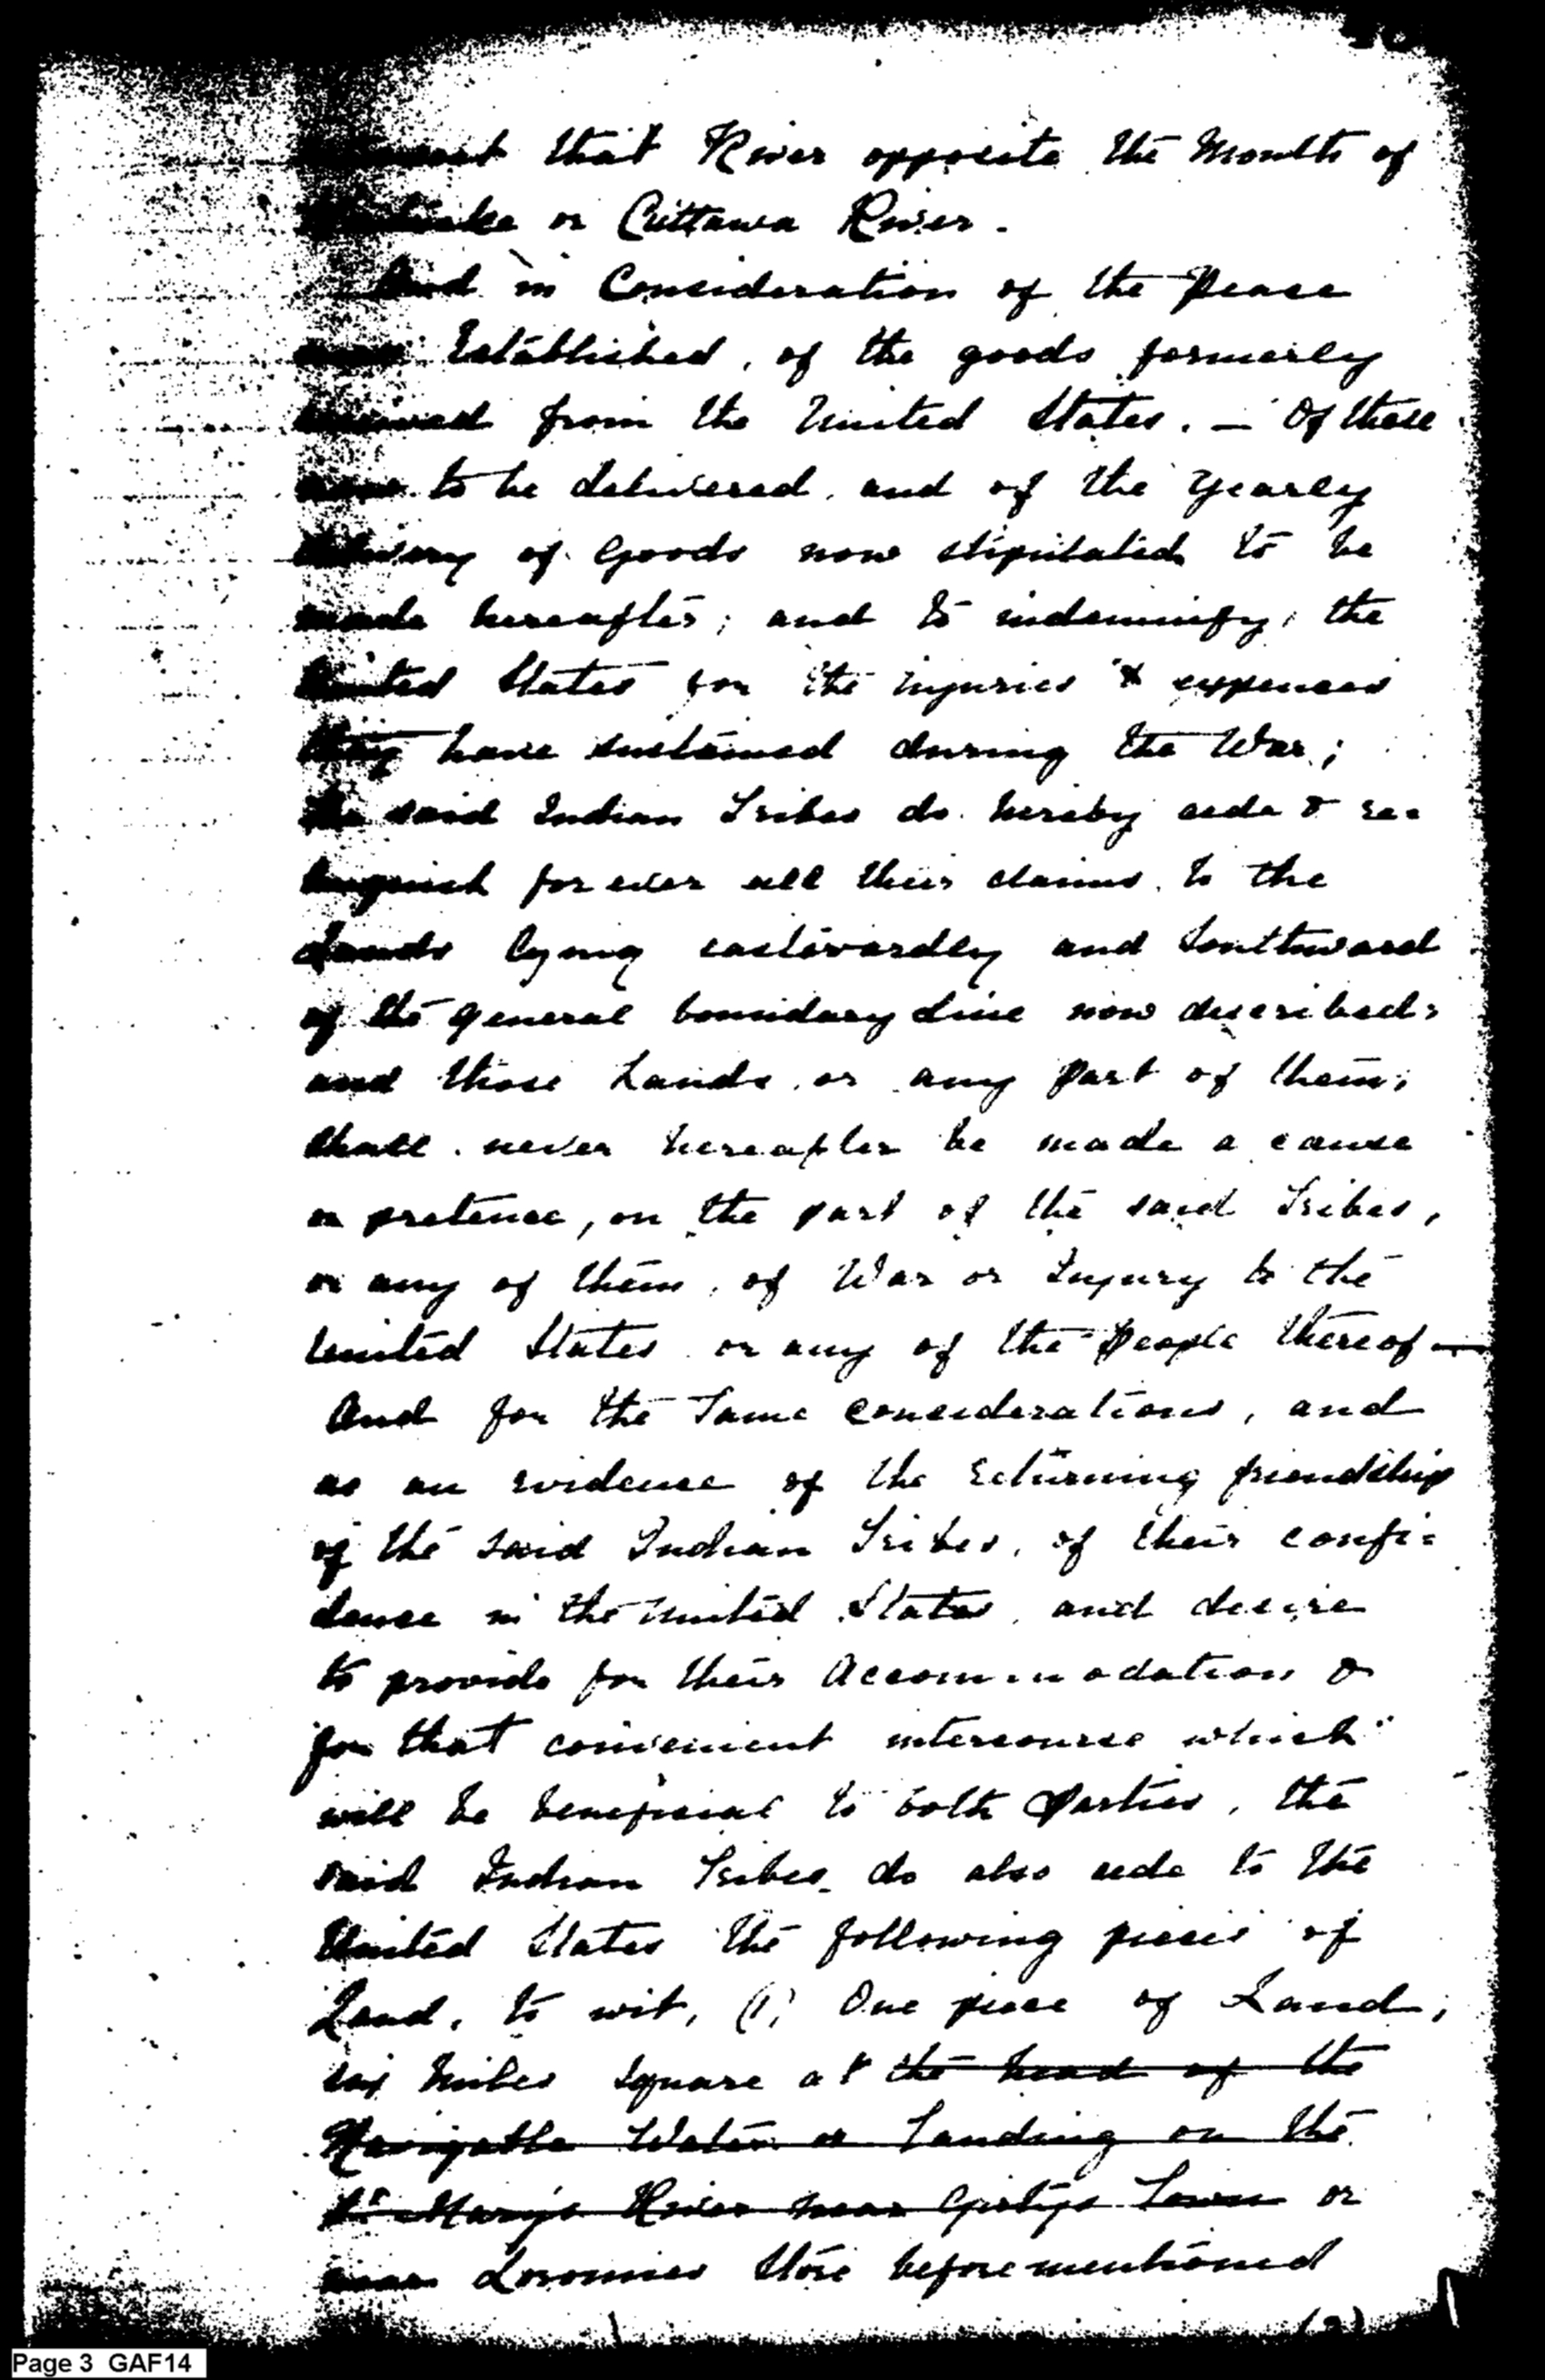 that River opposite the Mouth of
or Cuttawa River.
And in Consideration of the Peace
Established, of the goods formerly
received from the United States. — Of those
now to be delivered, and of the Yearly
delivery of Goods now stipulated to be
made hereafter; and to indemnify, the
United States for the injuries & expences
they have sustained during the War;
the said Indian Tribes do hereby cede & re=
linquish for ever all their claims, to the
Lands lying eastwardly and Southward
of the general boundary Line now described;
and those Lands, or any part of them;
shall never hereafter be made a cause
or pretence, on the part of the said Tribes,
or any of them, of War or Injury to the
United States or any of the People thereof —
And for the Same considerations, and
as an evidence of the returning friendship
of the said Indian Tribes, of their confi=
dence in the United States, and desire
to provide for their Accommodation &
for that convenient intercourse which
will be beneficial to both Parties, the
said Indian Tribes do also cede to the
United States the following pieces of
Land, to wit, (1) One piece of Land,
six Miles Square at the head of the
Navigable Water or Landing on the
St Mary's River near Girtys Town or
near Loromies Store before mentioned
(3)
Page 3 GAF14